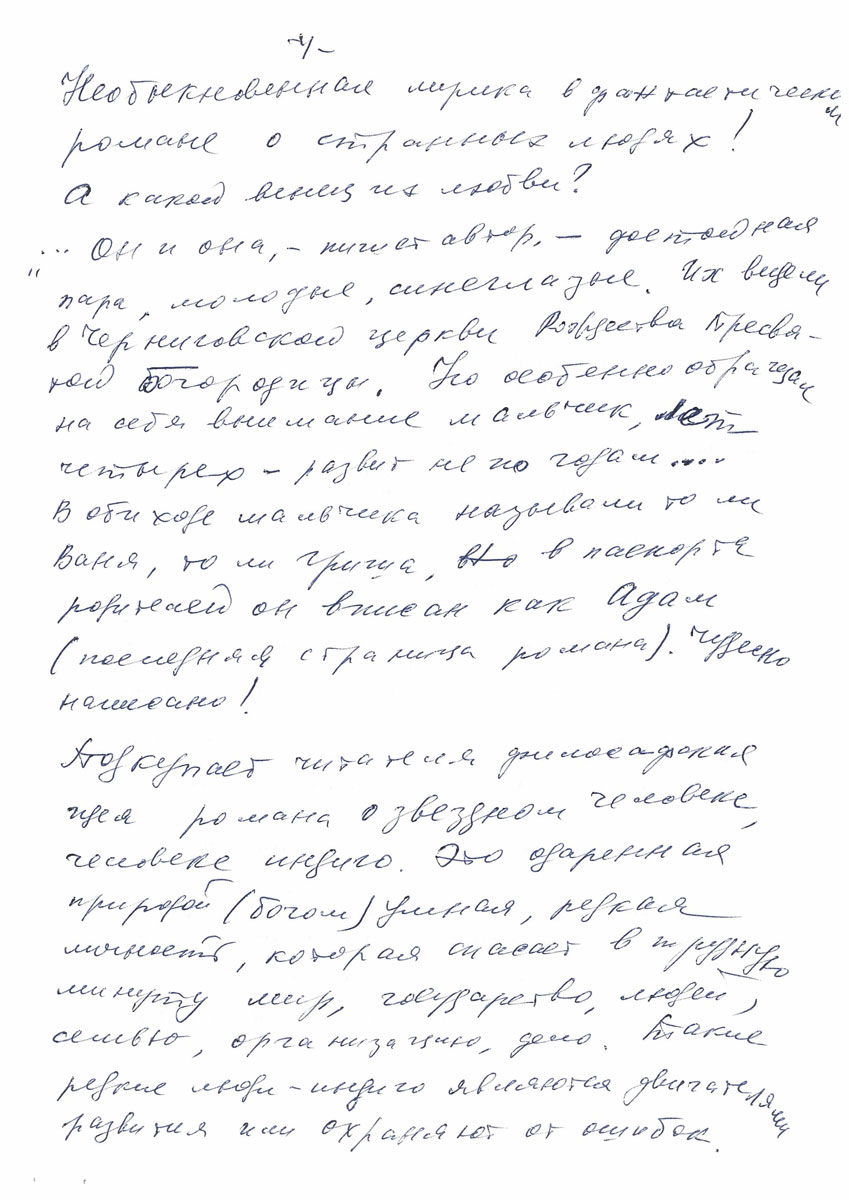 -4-
Необыкновенная лирика в фантастическом
романе о странных людях!
А какой венец их любви?
"... Он и она, - пишет автор, - достойная
пара, молодые, синеглазые. Их видели
в Черниговской церкви Рождества Пресвя-
той Богородицы. Но особенно обращал
на себя внимание мальчик, лет
четырех - развит не по годам....
В обиходе мальчика называли то ли
Ваня, то ли Гриша, но в паспорта
родителей он вписан как Адам
(последняя страница романа). Чудесно
написано!
Подкупает читателя философская
идея романа о звездном человеке,
человеке индиго. Это одаренная
природой (богом) умная, редкая
личность, которая спасает в трудную
минуту мир, государство, людей,
семью, организацию, дело. Такие
редкие люди-индиго являются двигателями
развития или охраняют от ошибок.